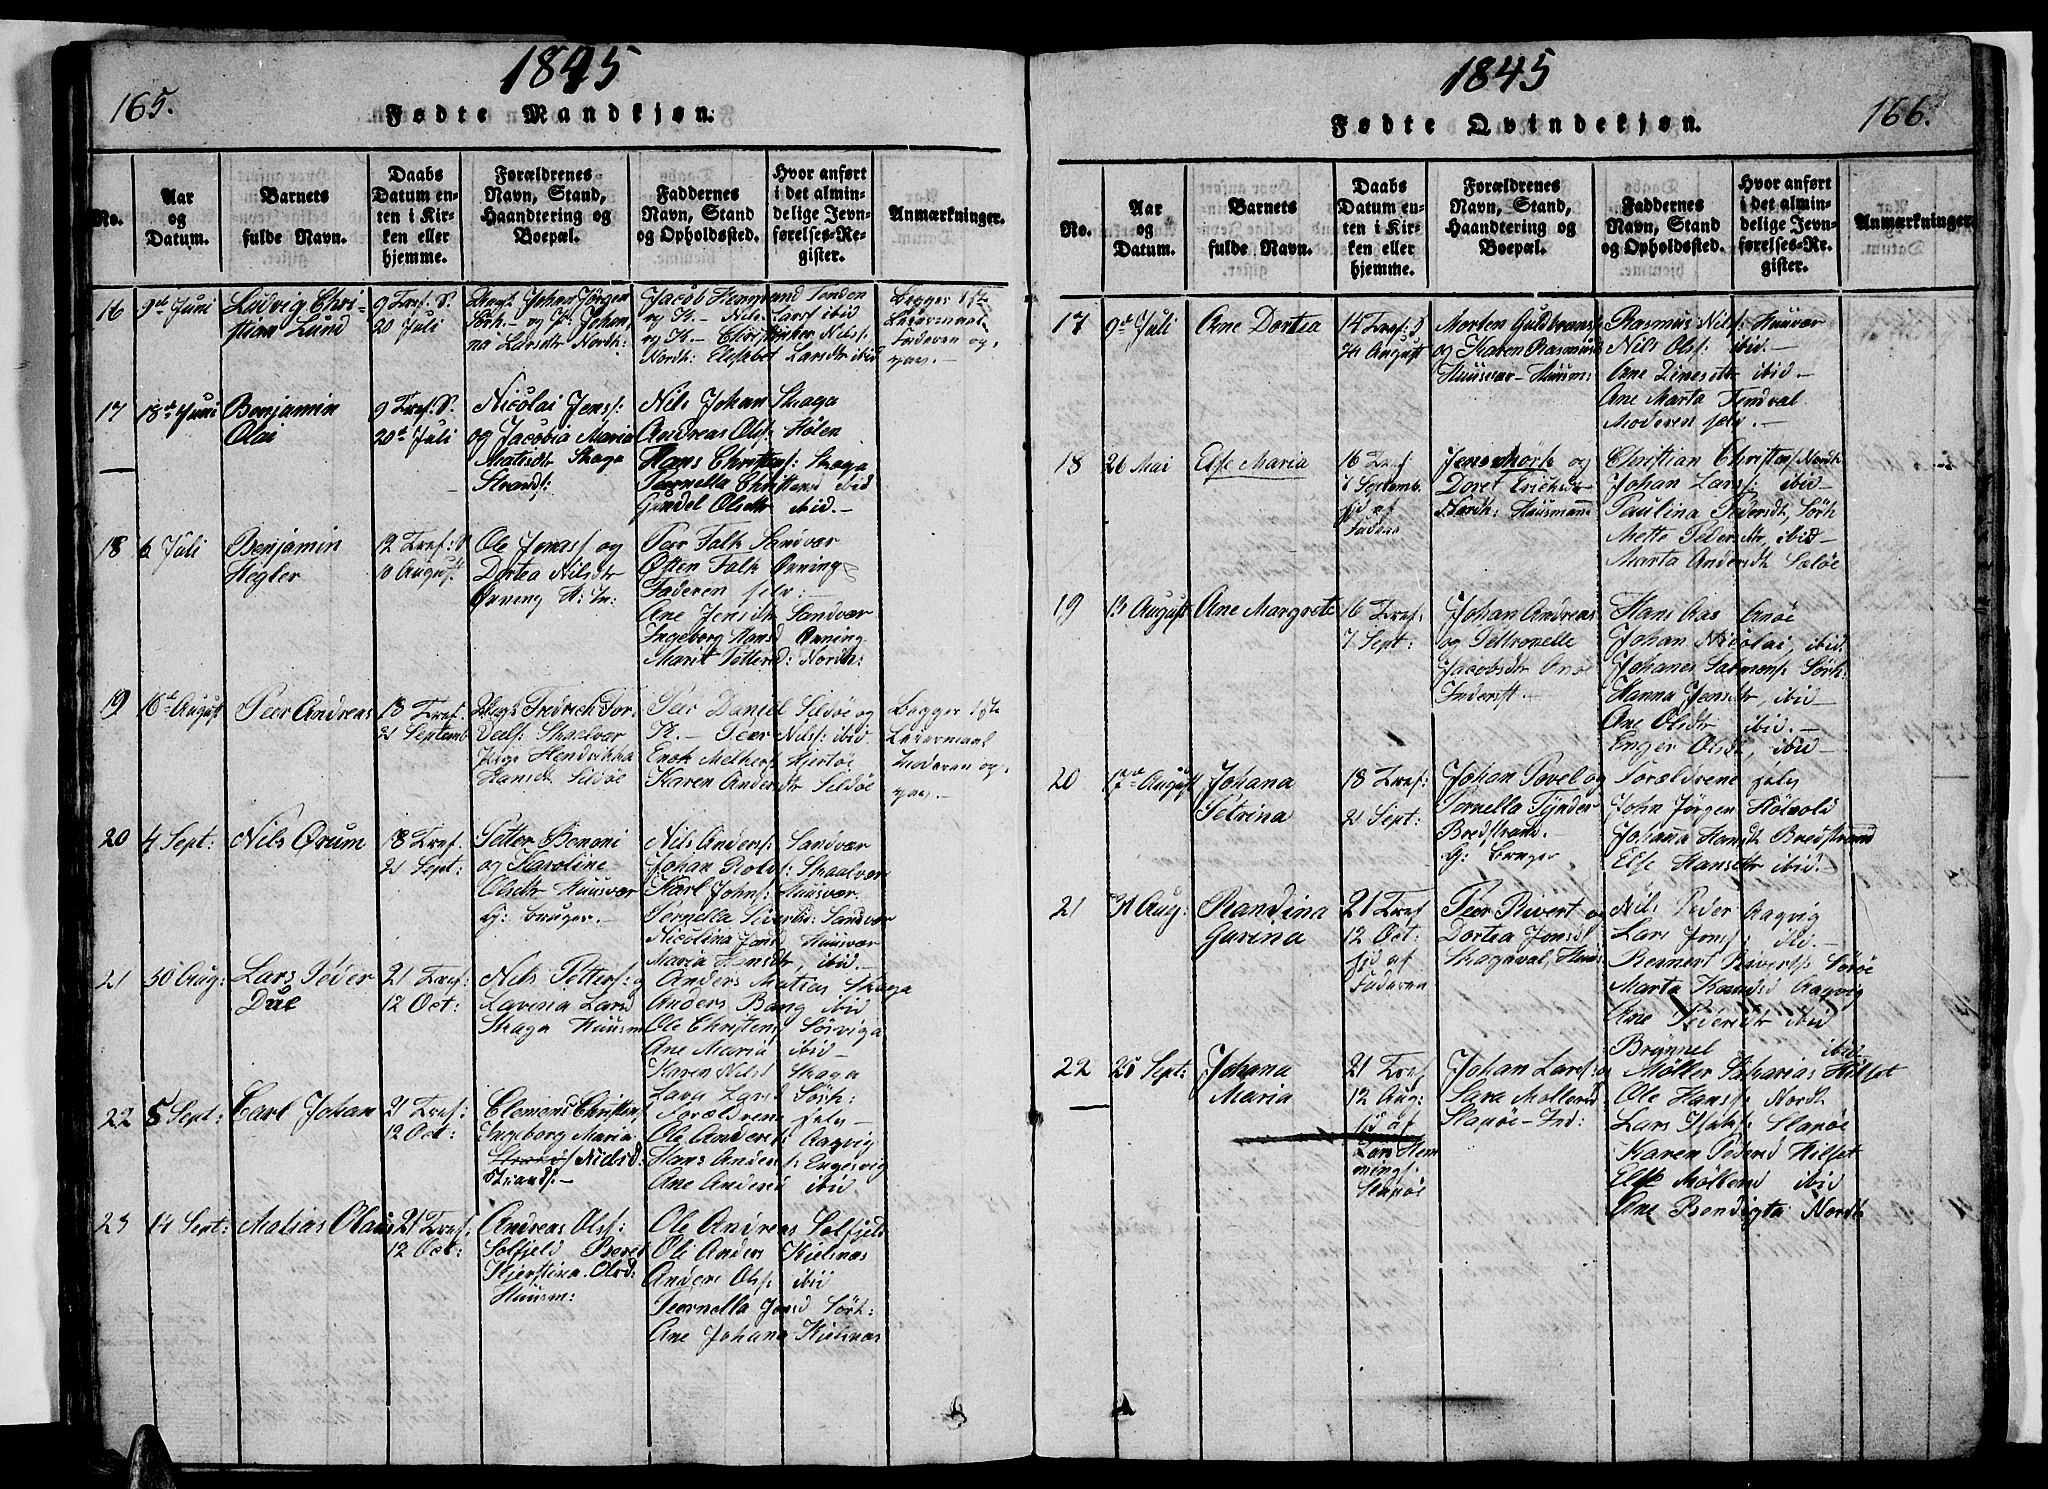 165.
1845
Fødte Mandkjøn.
No.
Aar
og
Datum.
Barnets
fulde Navn.
Daabs
Datum en-
ten i Kir-
ken eller
hjemme.
Forældrenes
Navn, Stand,
Haandtering og
Boepæl.
Faddernes
Navn, Stand
og Opholdssted.
Hvor anført
i det almin-
delige Jevn-
førelses-Re-
gister.
Anmærkninger.
16
9de Juni
Ludvig Chri-
stian Lund
9 Tref: S.
20 Juli
Ungk. Johan Jörgen
Sörh:- og P: Johan,
na Larsdtr Nordh:
Jacob Hermand Tenden
og K.- Nils Larss ibid
og K.- Christopher Nilss:
Nordh: Elisabet Larsdtr ibid
Begges 1ste
Leiermaal
Faderen og,
gav.-
17
18de Juni
Benjamin
Olai
9 Tref: S.
20de Juli
Nicolai Jenss:
og Jacobia Maria
Matisdtr Skaga
Strands:
Nils Johan Skaga
Andreas Olss: Holen
Hans Christens: Skaga
Peernella Christensd ibid
Gundel Olsdtr ibid.-
18
6 Juli
Benjamin
Hegler
12 Tref: S
10 August
Ole Jonass og
Dortea Nilsdtr
Örning
Peer Falk Sandvær
Östen Falk Örning
Faderen selv:-
Ane Jensdtr Sandvær
Ingeborg Hansd Örning
Marit Pettersd: Nordh:
19
16de August
Peer Andreas
18 Tref.
21 Septemb
Ungk Fredrich Tor-
Skaalvær
Pige Hendrikka
Hansdr Sildöe
Peer Daniel Sildöe og
K.- Peer Nilss: ibid
Enok Melkers Hjertöe
Karen Andersdtr Sildöe
Begges 1ste
Leiermaal
Faderen og,
gav.-
20
4 Sept:
Nils Ørum
18 Tref.
21 Sept:
Petter Benoni
og Karoline
Olsdtr Huusvær
G: bruger.-
Nils Anderss: Sandvær
Johan Rolds: Skaalvær
Karl Johns: Huusvær
Pernella Siverts: Sandvær
Nicolina Jonsd Huusvær
Maria Hansdtr, ibid.-
21
30 Aug:
Lars Peder
Due
21 Tref:
12 Oct:
Nils Petters: og
Lavina Larsd
Skaga Huusm
Anders Matias Skaga
Anders Bang ibid
Ole Christens Sörviga
Ane Maria ibid-
Karen Nilsd Skaga
Lava Larsd Sörh:
22
5 Sept:
Carl Johan
21 Tref:
12 Oct:
Clemens Christens
Ingeborg Maria
Nielsd:
Strands:-
Forældrene selv-
Ole Anders: Aagvig
Hans Anders: Engesvig
Ane Andersd ibid
23
14 Sept:
Matias Olaus
21 Tref:
12 Oct:
Andreas Olss:
Solfjeld Beret
Kjerstina Olsd:
Huusm:
Ole Andreas Solfjeld
Oli Anders Kjelnas
Anders Olss: ibid
Peernella Jonsd Sörh:
Ane Johana Kjelnas
1845
166.
Fødte Qvindekjøn.
No.
Aar
og
Datum.
Barnets
fulde Navn.
Daabs
Datum en-
ten i Kir-
ken eller
hjemme.
Forældrenes
Navn, Stand,
Haandtering og
Boepæl.
Faddernes
Navn, Stand
og Opholdssted.
Hvor anført
i det almin-
delige Jevn-
førelses-Re-
gister.
Anmærkninger.
17
9de Juli
Ane Dortea
14 Tref: S
24 August
Morten Guldbranss
og Karen Rasmusd
Huusvær- Huusm:
Rasmus Nilss: Huusvær
Nils Olss: ibid.-
Ane Zinesdtr ibid.-
Ane Marta Tendval
Moderen selv.-
18
26 Mai
Else Maria
16 Tref
7 Septemb.
jd af
Faderen
Jens Mörk og
Doret Erichsdr
Nordh: Huusmand
Christian Christens Nordh
Johan Larss: ibid
Paulina Pedersdt, Sörh
Mette Pedersdtr, ibid-
Marta Andersdt Salöe
19
13 August
Ane Margrete
16 Tref:
7 Sept:
Johan Andreas
og Pettronelle
Jacobsdt Anöe
Inderst.-
Hans Aas Anöe
Johan Nicolai, ibid.
Johanes Salmons: Sörh:
Hanna Jensdtr, ibid-
Ane Olsdtr ibid.-
Enger Olsdt, ibid-
20
17de August
Johana
Petrina
18 Tref:
21 Sept:
Johan Povel og
Pernella Tynder
Bredstrand.-
G: bruger
Forældrene selv
John Jørgen Hölvold
Johana Hansdt Bredstrand
Else Hansdtr ibid.-
21
31 Aug:
Randina
Garina
21 Tref
12 Oct:
jd af
Faderen
Peer Rivert og
Dortea Jonsd
Skagaval, Huus
Nils Peder Aagvig
Lars Jonss: ibid.-
Reinert Riverts: Söröe
Marta Knudsd Aagvig
Ane Pedersdtr ibid
Brynnel ibid
22
28 Sept:
Johana
Maria
21 Tref
12 Aug:
jd af
Lars Hem
mings:
Slapöe
Johan Larss: og
Sara Mollersd
Slapöe- Ind:
Möller Sakarias Hilset
Ole Hanss: Nordh
Lars Slapöe
Karen Pedersd Hilset
Else Möllersd ibid
Ane Bendigta Nordh